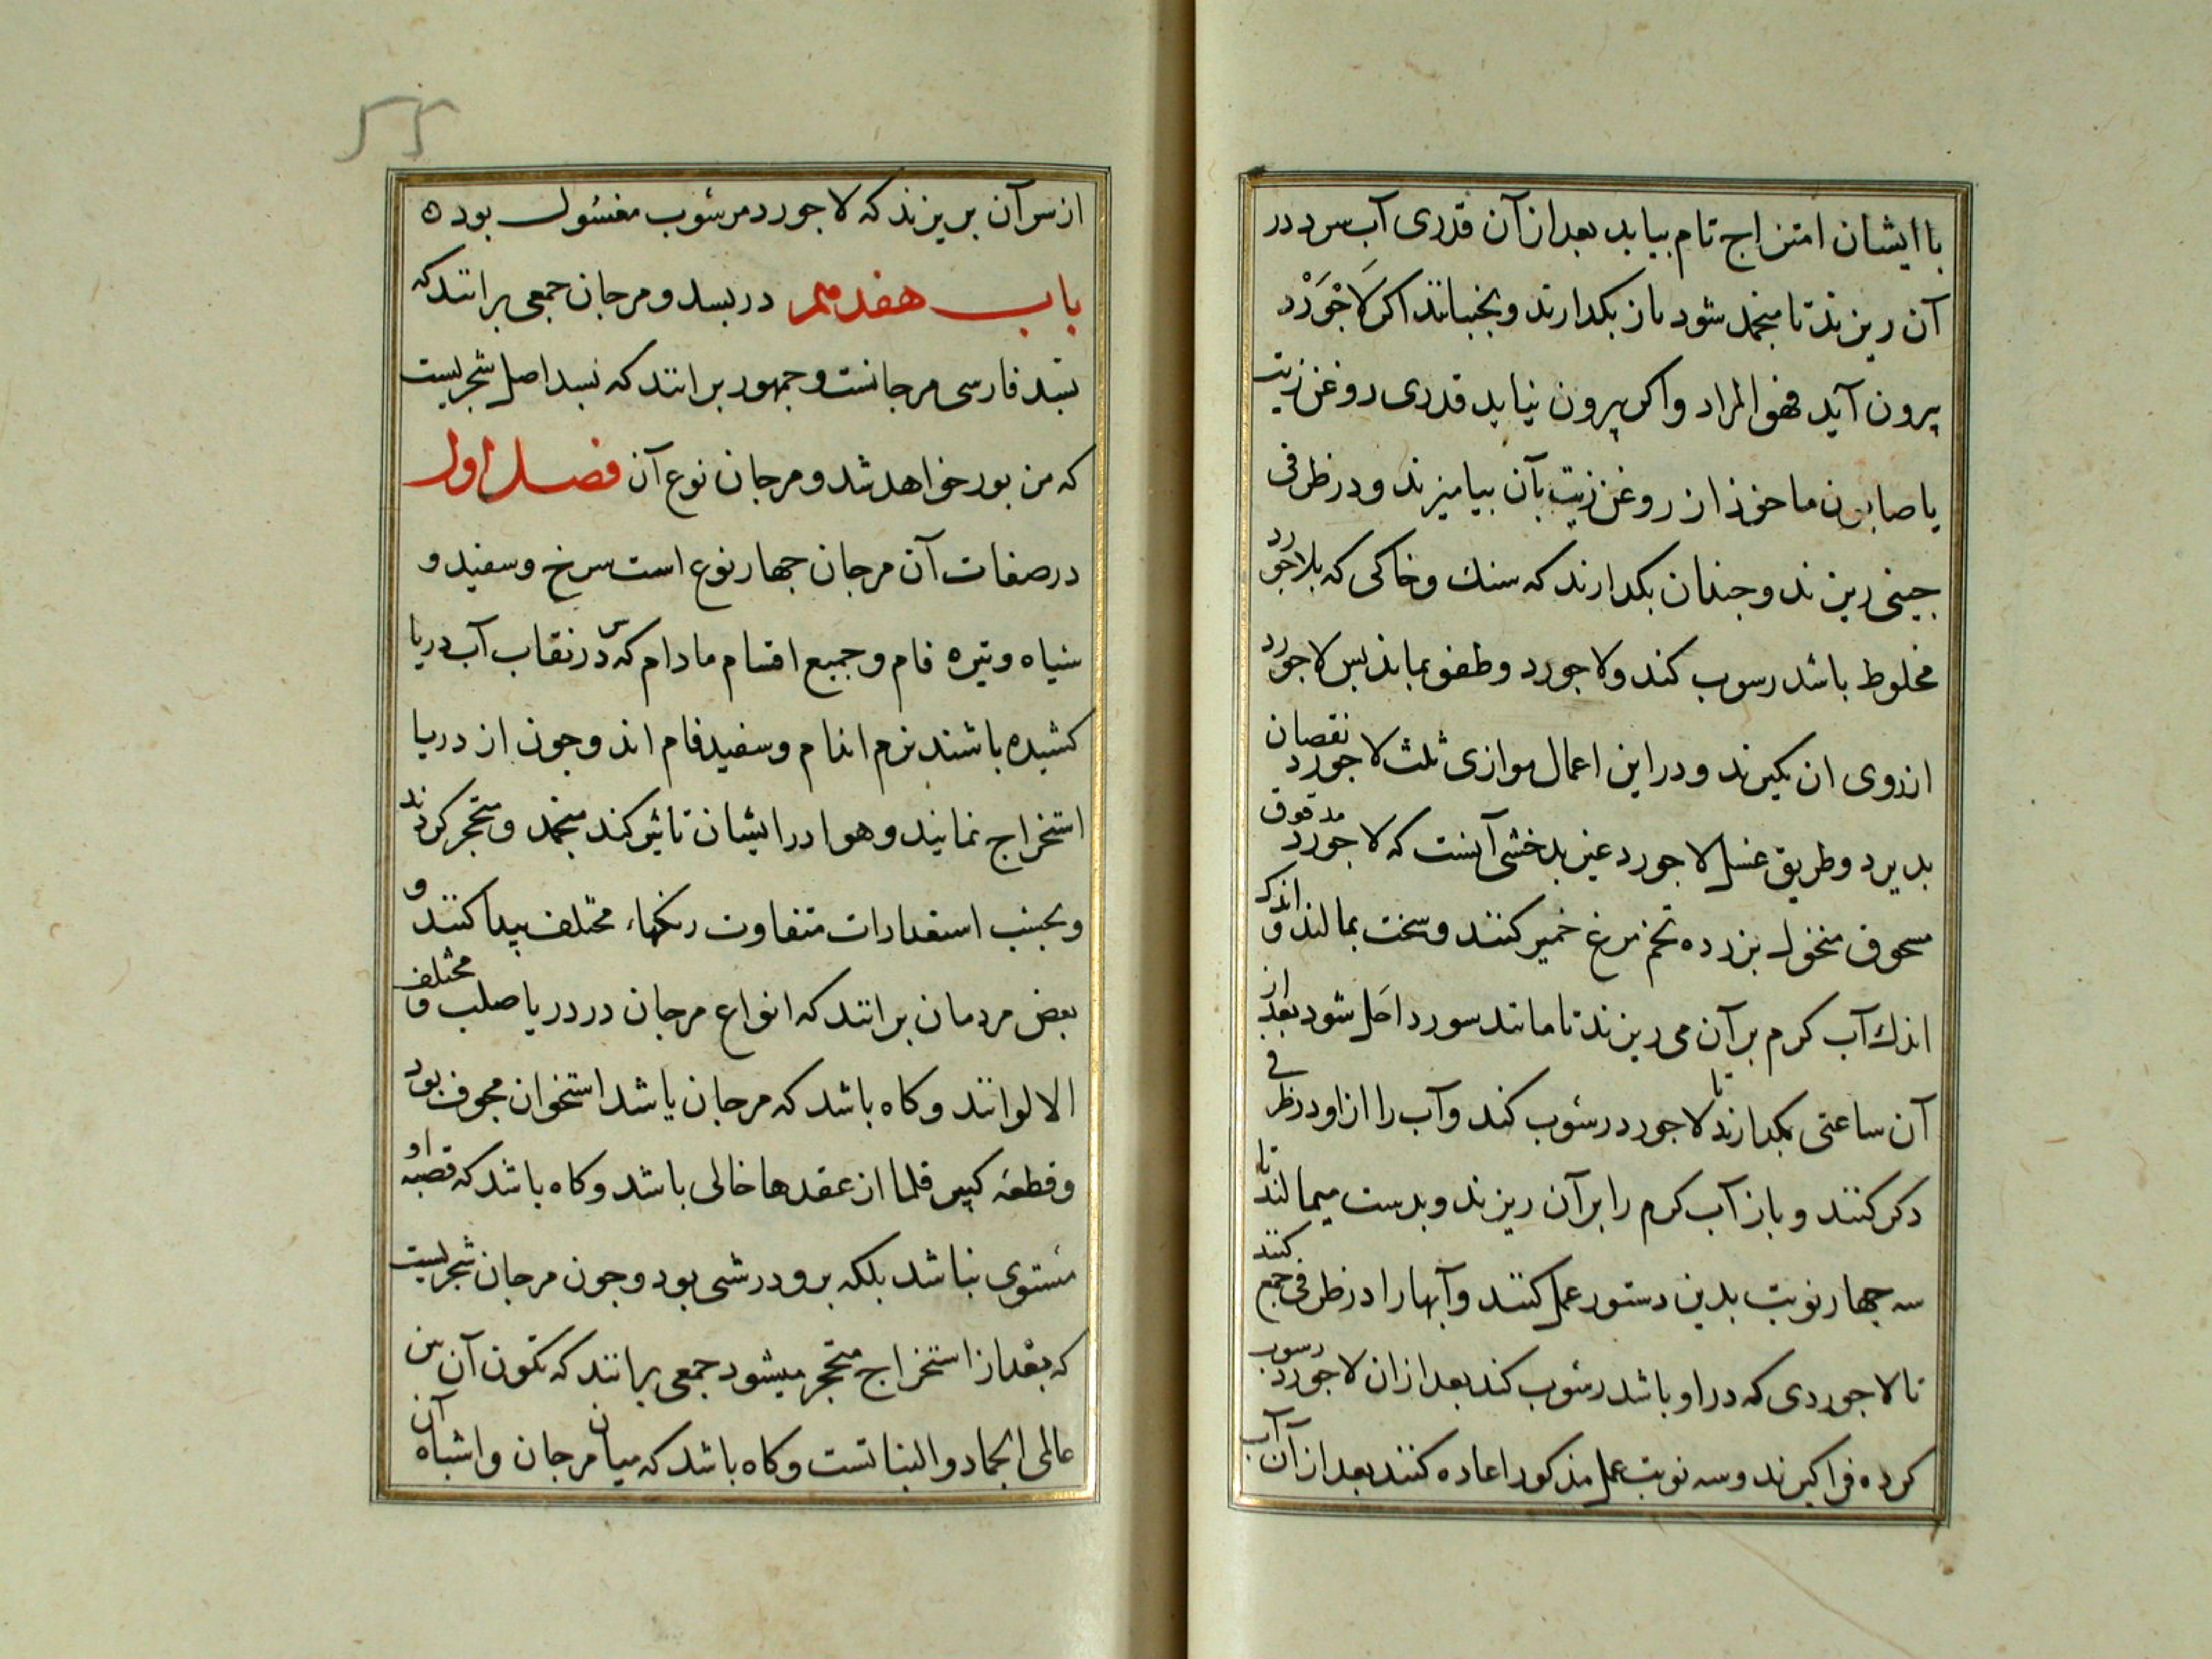 با ایشان امتزاج تام بیابد بعد از آن قدری آب سرد در
آن ریزند تا منجمد شود باز بکدارند و بجنبانند اکر لَاجْوَرْد
بیرون آید فهو المراد و اکر بیرون نیاید قدری روغن زیت
یا صابون ماخوذ از روغن زیت بآن بیامیزند و در ظرفی
جینی ریزند و جندان بکدارند که سنك و خاکی که بلاجورد
مخلوط باشد رسوب کند و لاجورد و طفو بماند بس لاجورد
از روی ان بکیرند و در این اعمال موازی ثلث لاجورد نقصان
بدیرد و طریق غسل لاجورد غیر بدخشی آنست که لاجورد مدقوق
مسحوق منخول بزرده تخم مرغ خمیر کنند و سخت بمالند و اندك
اندك آب کرم بر آن می ریزند تا مانند سورد احل شود بعد از
آن ساعتی بکدارند تا لاجورد رسُوب کند و آب را از او در ظرفی
دکر کنند و باز آب کرم را بر آن ریزند و بدست میمالند تا
سه جهار نوبت بدین دستور عمل کنند و آبها را در ظرفی جمع کنند
تا لاجوردی که در او باشد رسُوب کند بعد از ان لاجورد رسوب
کرده فرا کیرند و سه نوبت عمل مذکور اعاده کنند بعد از آن آب
۵۵
از سر آن بریزند که لاجورد مرسُوب مغسُول بود ه
باب هفدهم در بسد و مرجان جمعی برانند که
بسد فارسی مرجانست و جمهور برانند که بسد اصل شجریست
که من بور خواهد شد و مرجان نوع آن فصل اول
در صفات آن مرجان جهار نوع است سرخ و سفید و
سیاه و تیره فام و جمیع اقسام مادام که سر در نقاب آب دریا
کشیده باشند نرم اندام و سفید فام اند و جون از دریا
استخراج نمایند و هوا در ایشان تاثیر کند منجمد و متحجر کردند
و بحسب استعدادات متفاوت رنکهاء مختلف پیدا کنند و
بعض مردمان برانند که انواع مرجان در دریا صلب و مختلف
الالوانند و کاه باشد که مرجان یا شد استخوان مجوف بود
و قطعه کبیر قلما از عقدها خالی باشد و کاه باشد که قصبه او
مستوی نباشد بلکه برو درشی بود و جون مرجان شجریست
که بعد از استخراج متحجر میشود جمعی برانند که تکون آن من
عالمی الجماد و النباتست و کاه باشد که میان مرجان و اشباه آن